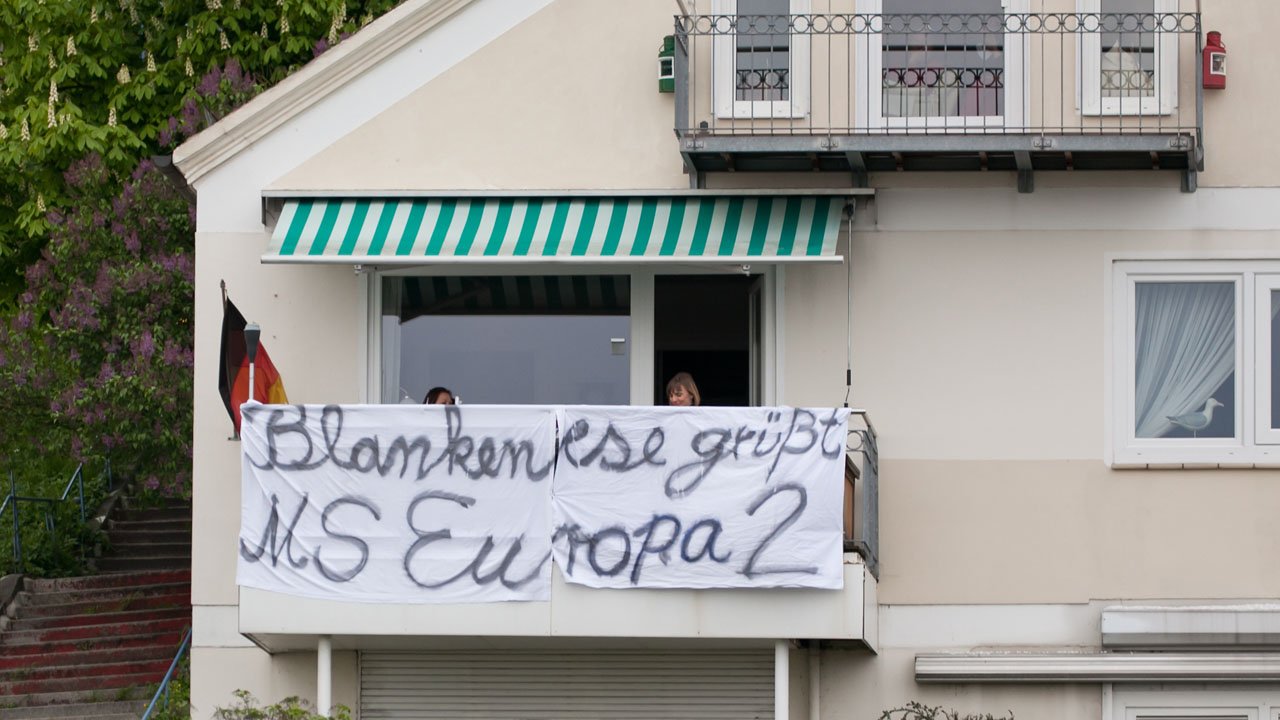 Blankenese grüßt
MS Europa 2